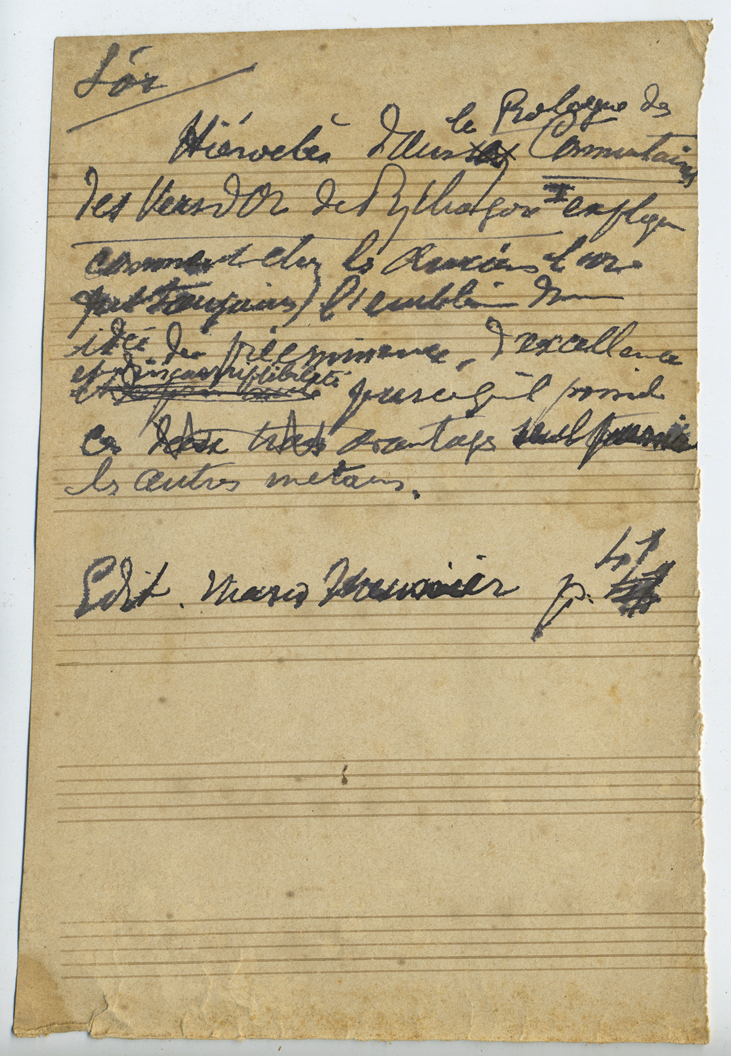 L'or
le Prologue des
Hiéroclès dans Commentaires
des Vers d'Or de Pythagore explique
comment chez les Anciens l'or
fut toujours l'emblème d'une
idée de prééminence, d'excellence
et d'incorruptibilité puisqu'il possède
ces trois avantages
les autres métaux.
Edit. Mario Meunier p. 41